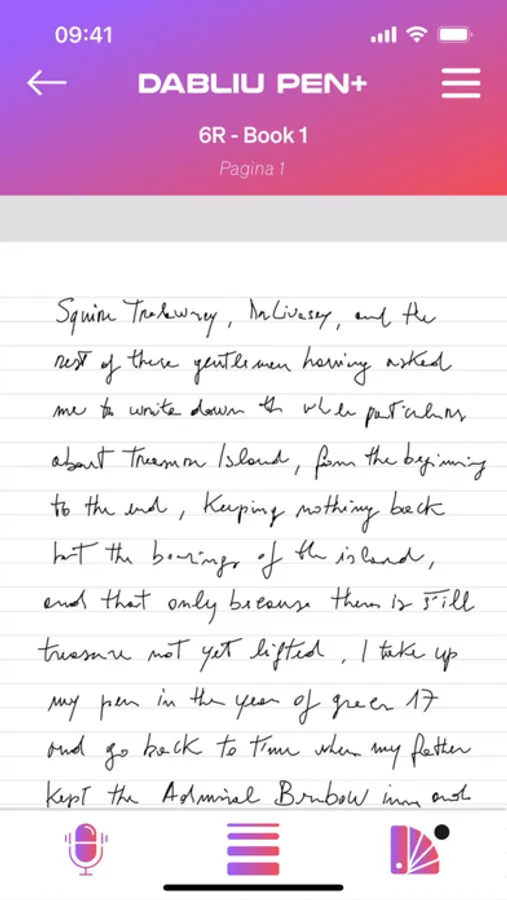 09:41
DABLIU PEN+
6R - Book 1
Pagina 1
Squire Trelawney, Dr Livesey, and the
rest of these gentlemen having asked
me to write down the whole particulars
about Treasure Island, from the beginning
to the end, keeping nothing back
but the bearings of the island,
and that only because there is still
treasure not yet lifted, I take up
my pen in the year of green 17
and go back to time when my father
kept the Admiral Benbow inn and